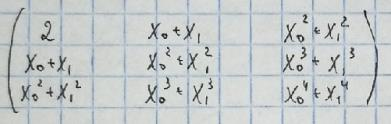 2 X₀+X₁ X₀²+X₁²
X₀+X₁ X₀²+X₁² X₀³+X₁³
X₀²+X₁² X₀³+X₁³ X₀⁴+X₁⁴